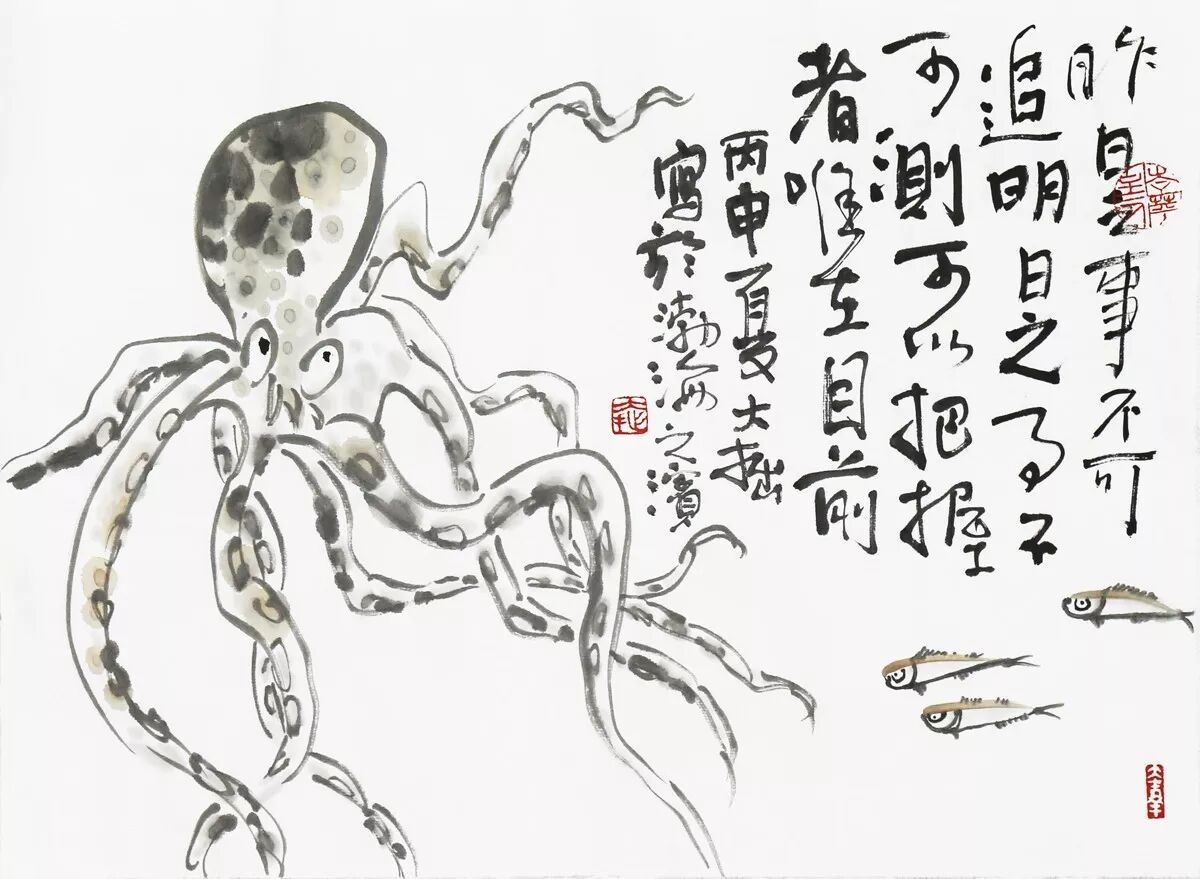 昨日之事不可
追明日之事不
可測可以把握
者唯在目前
丙申夏大拙
寫於渤海之濱